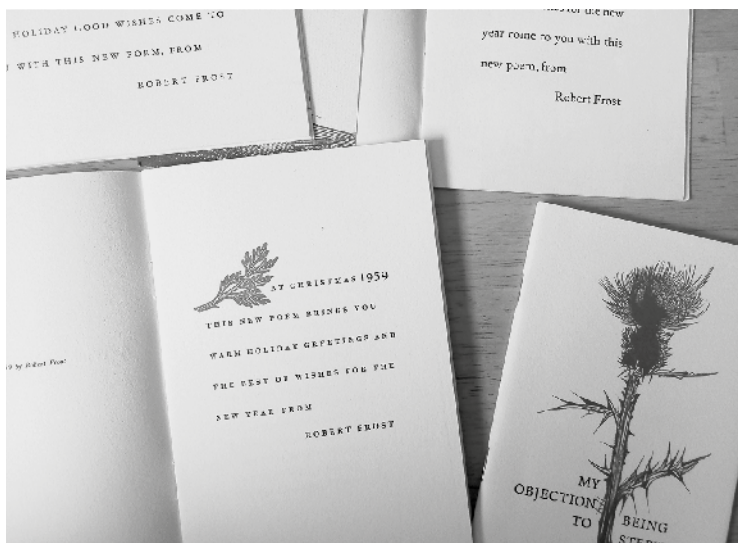 HOLIDAY GOOD WISHES COME TO
WITH THIS NEW POEM, FROM
ROBERT FROST
for the new
year come to you with this
new poem, from
Robert Frost
AT CHRISTMAS 1959
THIS NEW POEM BRINGS YOU
WARM HOLIDAY GREETINGS AND
THE BEST OF WISHES FOR THE
NEW YEAR FROM
ROBERT FROST
by Robert Frost
MY
OBJECTION
TO
BEING